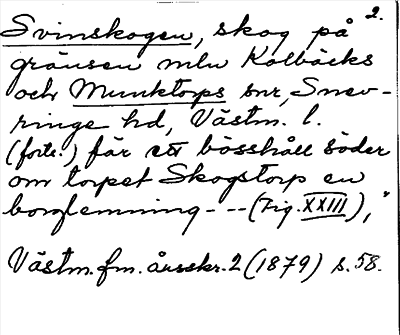 2.
Svinskogen, skog på
gränsen mln Kolbäcks
och Munktorps snr, Snev-
ringe hd, Västm. l.
(forts.) får ett bösshåll söder
om torpet Skogstorp en
borglemning - -- (Fig. XXIII),"
Västm. fm. årsskr. 2 (1879) s. 58.